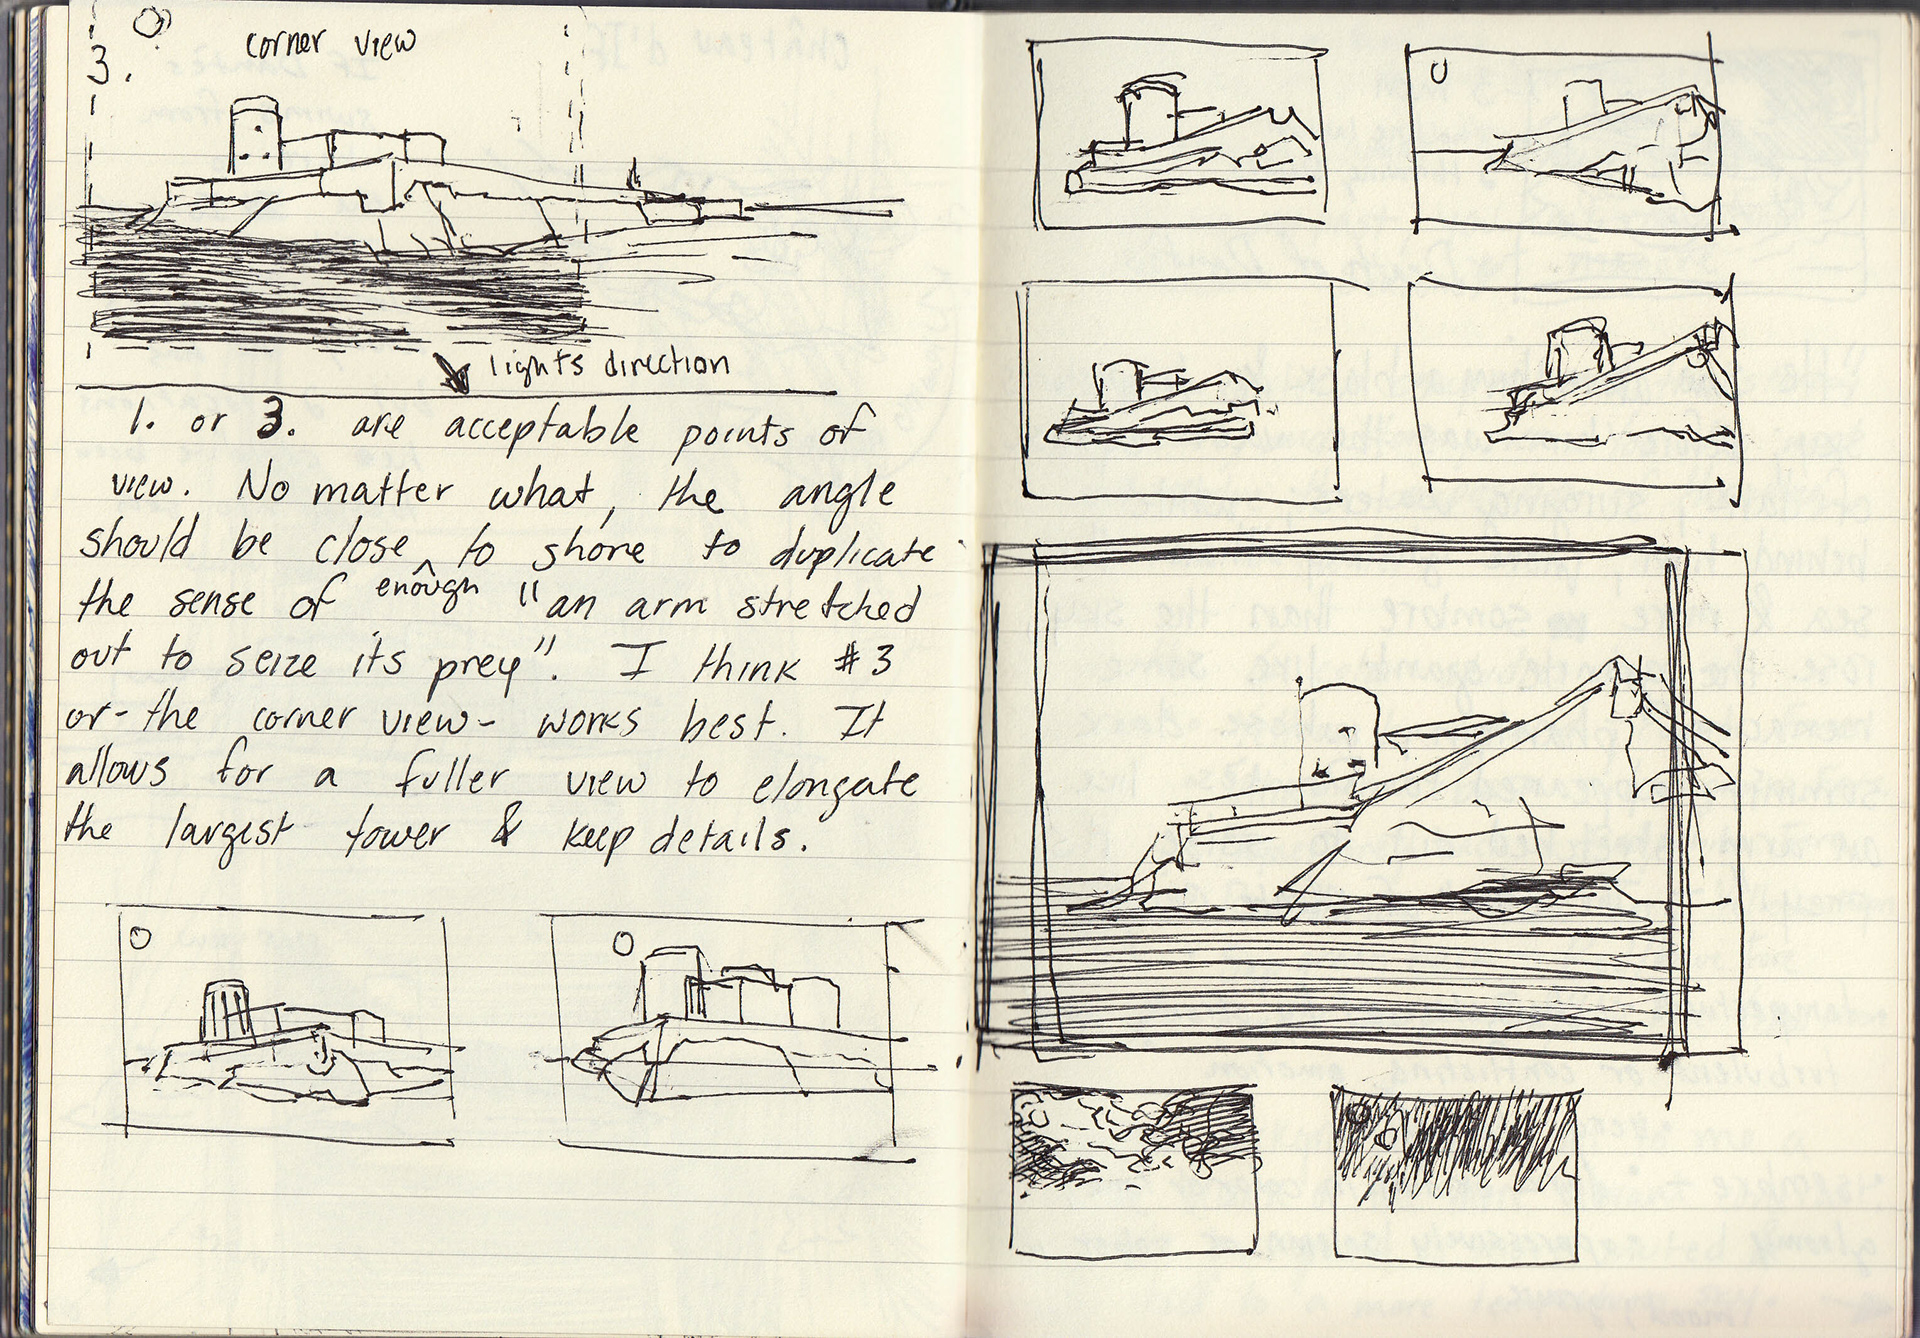 3.
corner view
lights direction
1. or 3. are acceptable points of
view. No matter what, the angle
should be close enough to shore to duplicate
the sense of "an arm stretched
out to seize its prey". I think #3
or - the corner view - works best. It
allows for a fuller view to elongate
the largest tower & keep details.